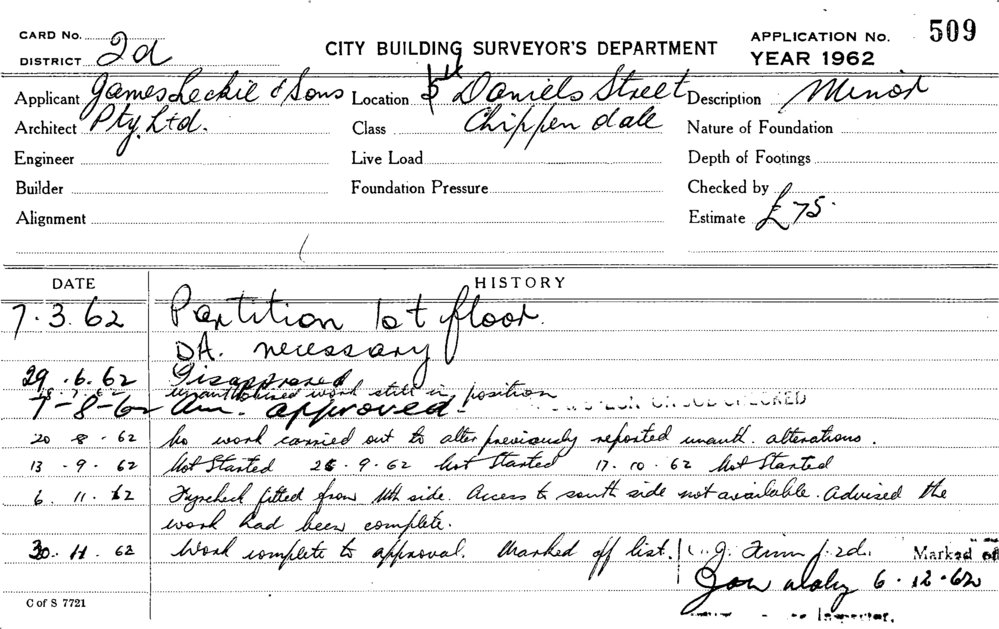 CARD No.
DISTRICT 2d
CITY BUILDING SURVEYOR'S DEPARTMENT
APPLICATION No. 509
YEAR 1962
Applicant James Leckie & Sons Location Daniels Street Description Minor
Architect Pty. Ltd. Class Chippendale Nature of Foundation
Engineer Live Load Depth of Footings
Builder Foundation Pressure Checked by
Alignment Estimate £75.
DATE HISTORY
7.3.62 Partition 1st floor.
DA. necessary
29.6.62 Disapproved
unauthorised work still in position
7-8-62 Am. approved.
20 8.62 No work carried out to alter previously reported unauth. alterations.
13.9.62 Not Started 26.9.62 Not Started 17.10.62 Not Started
6.11.62 Fyrcheck fitted from Nth side. Access to south side not available. Advised the
work had been complete.
30.11.62 Work complete to approval. Marked off list. Marked off
6.12.62
Inspector.
C of S 7721